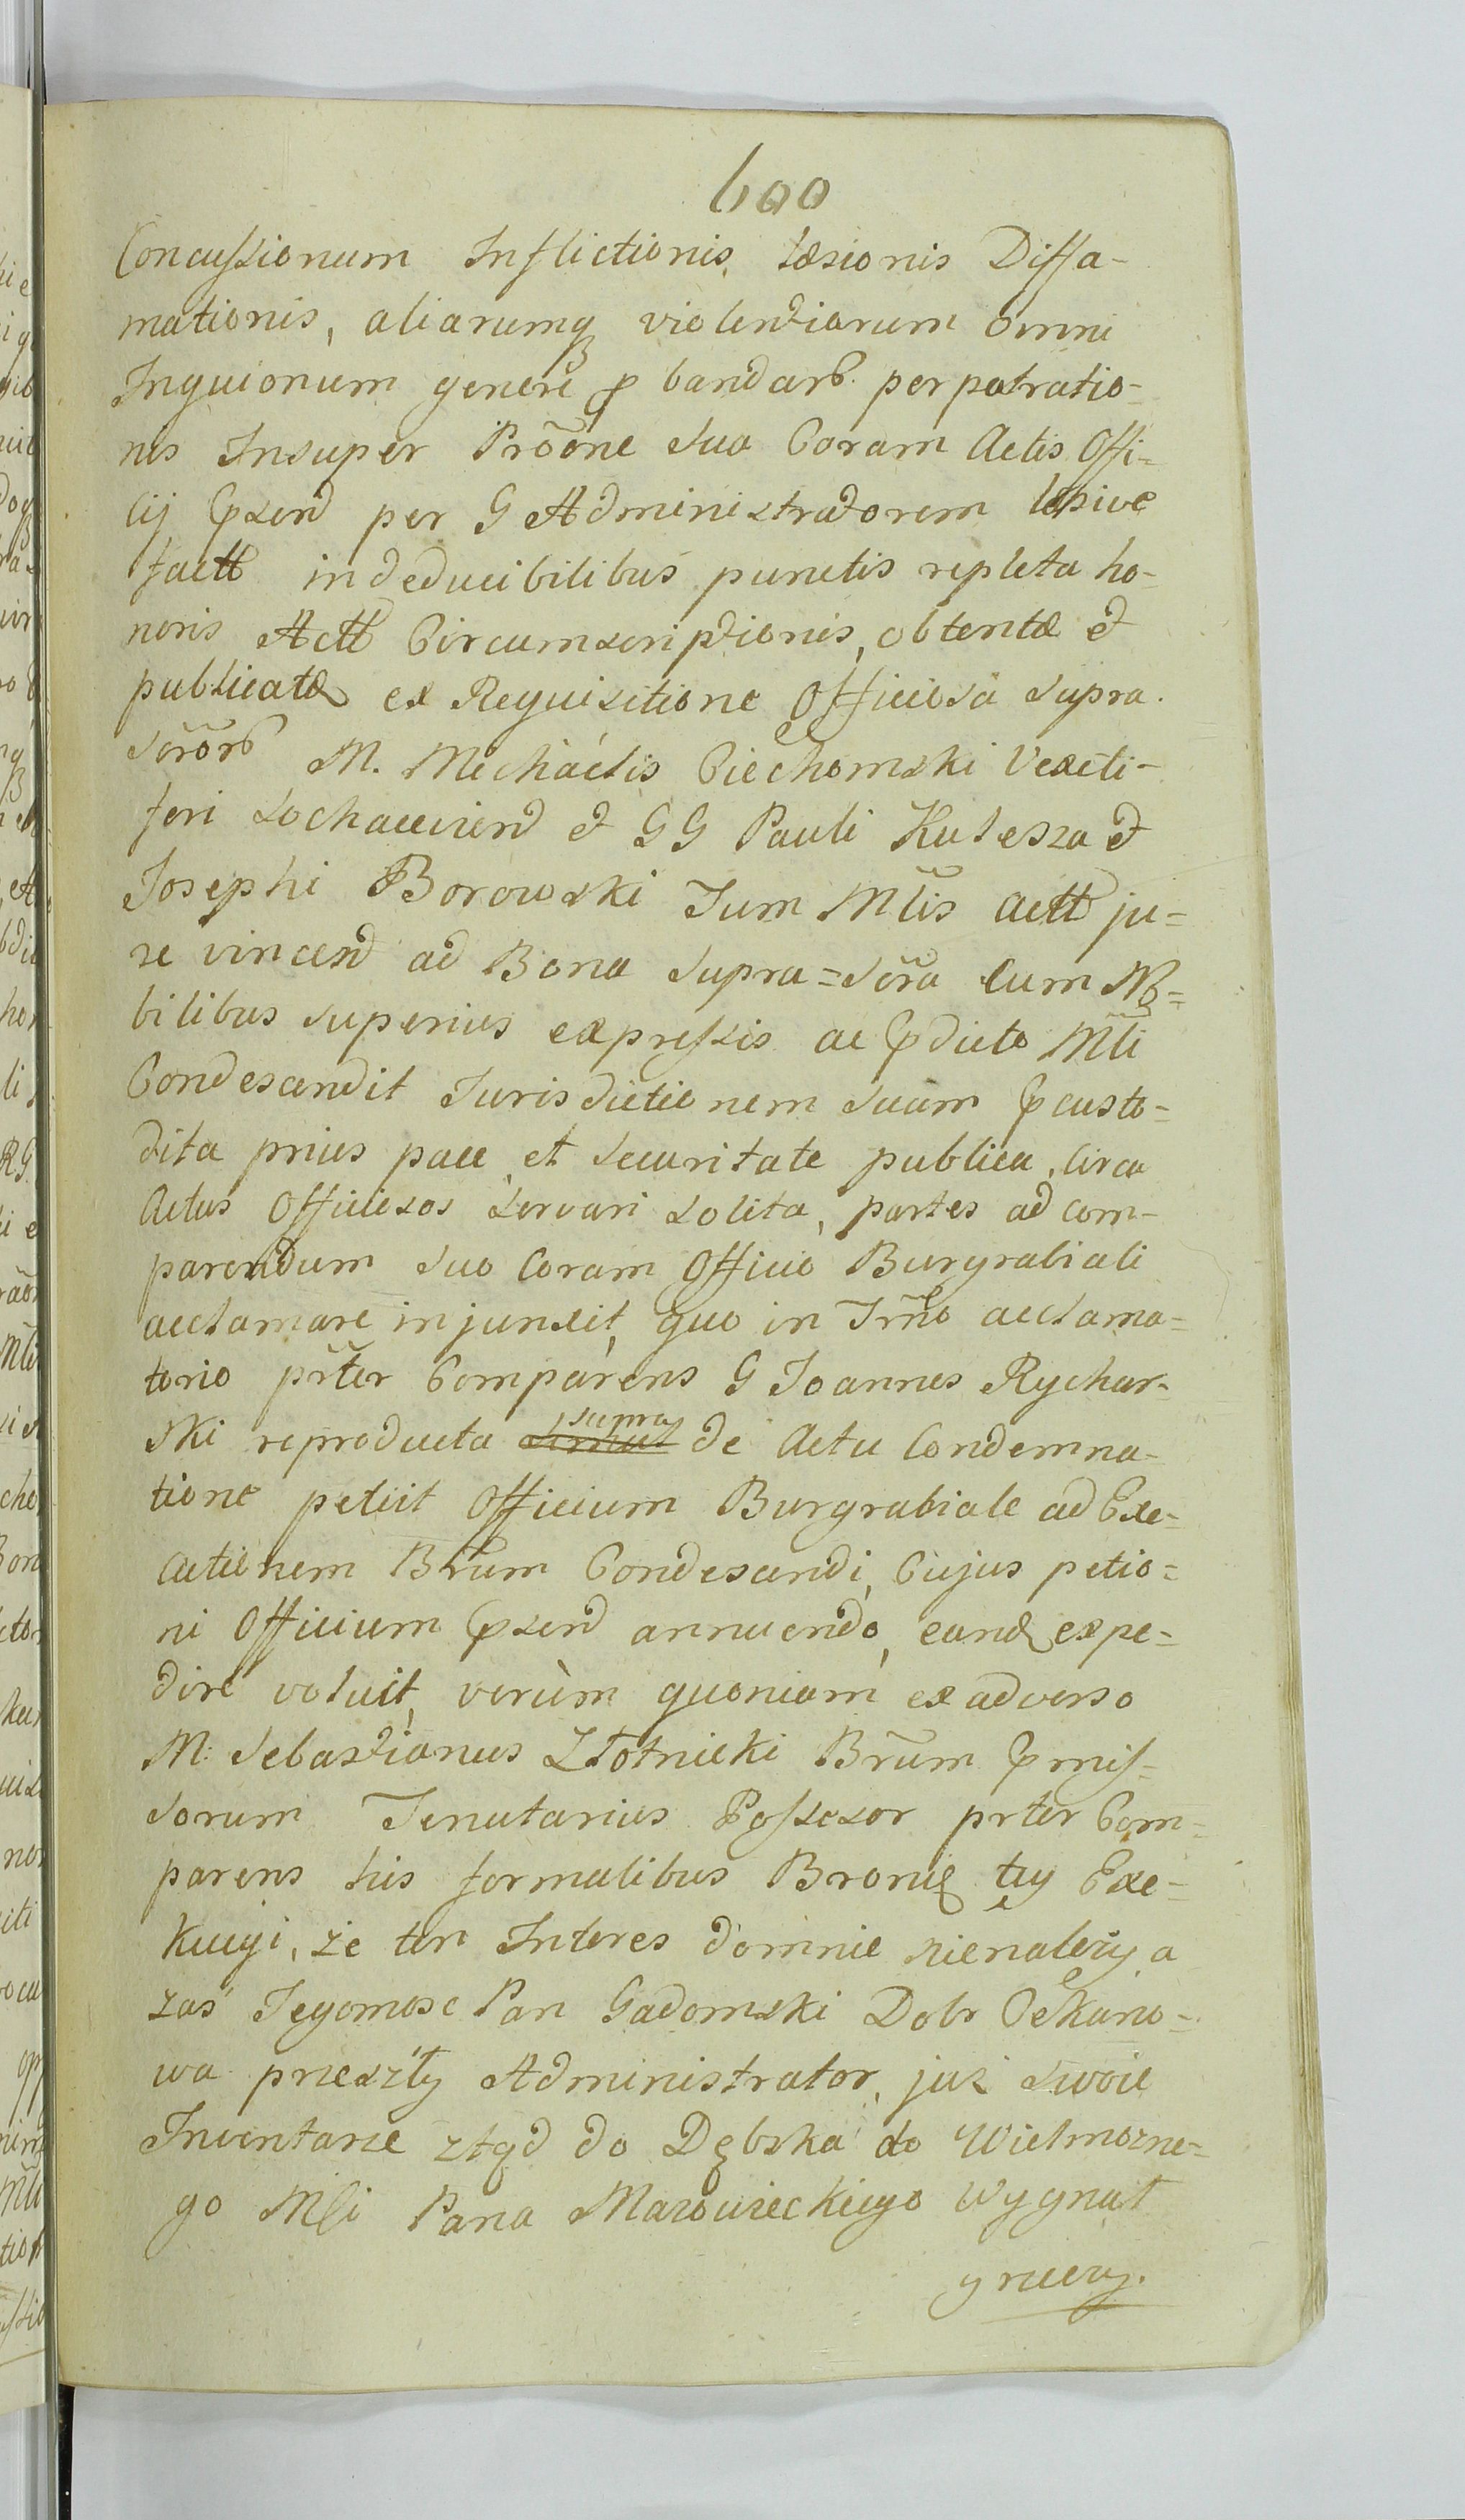 600
Concussionum Inflictionis, læsionis Diffa-
mationis, aliarumq violentiarum omni
Inquionum genere p bandarb. perpatratio-
nis Insuper Prõõne Sua Coram Actis Offi-
cij Pssend per G Administratorem læsive
factt indeducibilibus punctis repleta ho-
noris Actt Circumscriptionis, obtentæ et
publicatæ ex Requisitione Officiosa Supra.
Sõrõrb M. Michäelis Ciechomski Vexili-
feri Sochacevien et GG Pauli Kulesza et
Josephi Borowski Tum Mtis actt ju-
re vincend ad Bona Supra=Sõra cum No=
bilibus superius expressis ac Pdicto Mti
Condescendit Jurisdictionem Suam Pcusto=
dita prius pace et Securitate publica, circa
Actus Officiosos Servari Solita, partes ad com-
parendum Suo Coram Officio Burgrabiali
acclamare injunxit, quo in Trno acclama=
torio prter Comparens G Joannes Rychar-
ski reproducta supra de Actu Condemna-
tione petiit Officium Burgrabiale ad Exe-
cutionem Brum Condescendi, Cujus petio=
ni Officium Pssend annuendo, eand expe=
dire voluit, verùm quoniam ex adverso
M: Sebastianus Złotnicki Brum Pmis=
sorum Tenutarius Possessor prter Com=
parens his formalibus Bronię tey Exe-
kucyi, że ten Interes domnie nienależy a
zaś Jegomosc Pan Gadomski Dobr Cekano-
wa przeszły Administrator, już swoie
Inwentarze ztąd do Dębska do Wielmozne-
go Mści Pana Mazowieckiego Wygnał
y rzeczy.